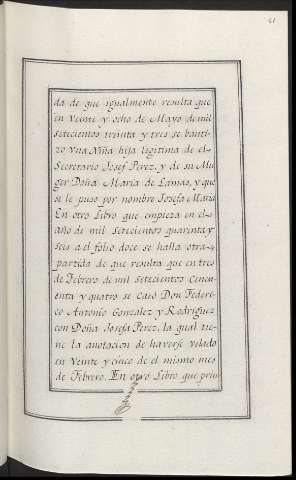 41
da de que igualmente resulta que
en Veinte y ocho de Mayo de mil
setecientos treinta y tres se bauti-
zo vna Niña hija legitima de el
Secretario Josef Perez, y de su Mu
ger Doña Maria de Lamas, y que
se le puso por nombre Josefa Maria
En otro Libro que empieza en el
año de mil Setecientos quarenta y
seis a el folio doce se halla otra
partida de que resulta que en tres
de Febrero de mil setecientos Cincu
enta y quatro se casó Don Federi-
co Antonio Gonzalez y Rodriguez
con Doña Josefa Perez, la qual tie-
ne la anotacion de haverse velado
en Veinte y cinco de el mismo mes
de Febrero. En otro Libro que prin